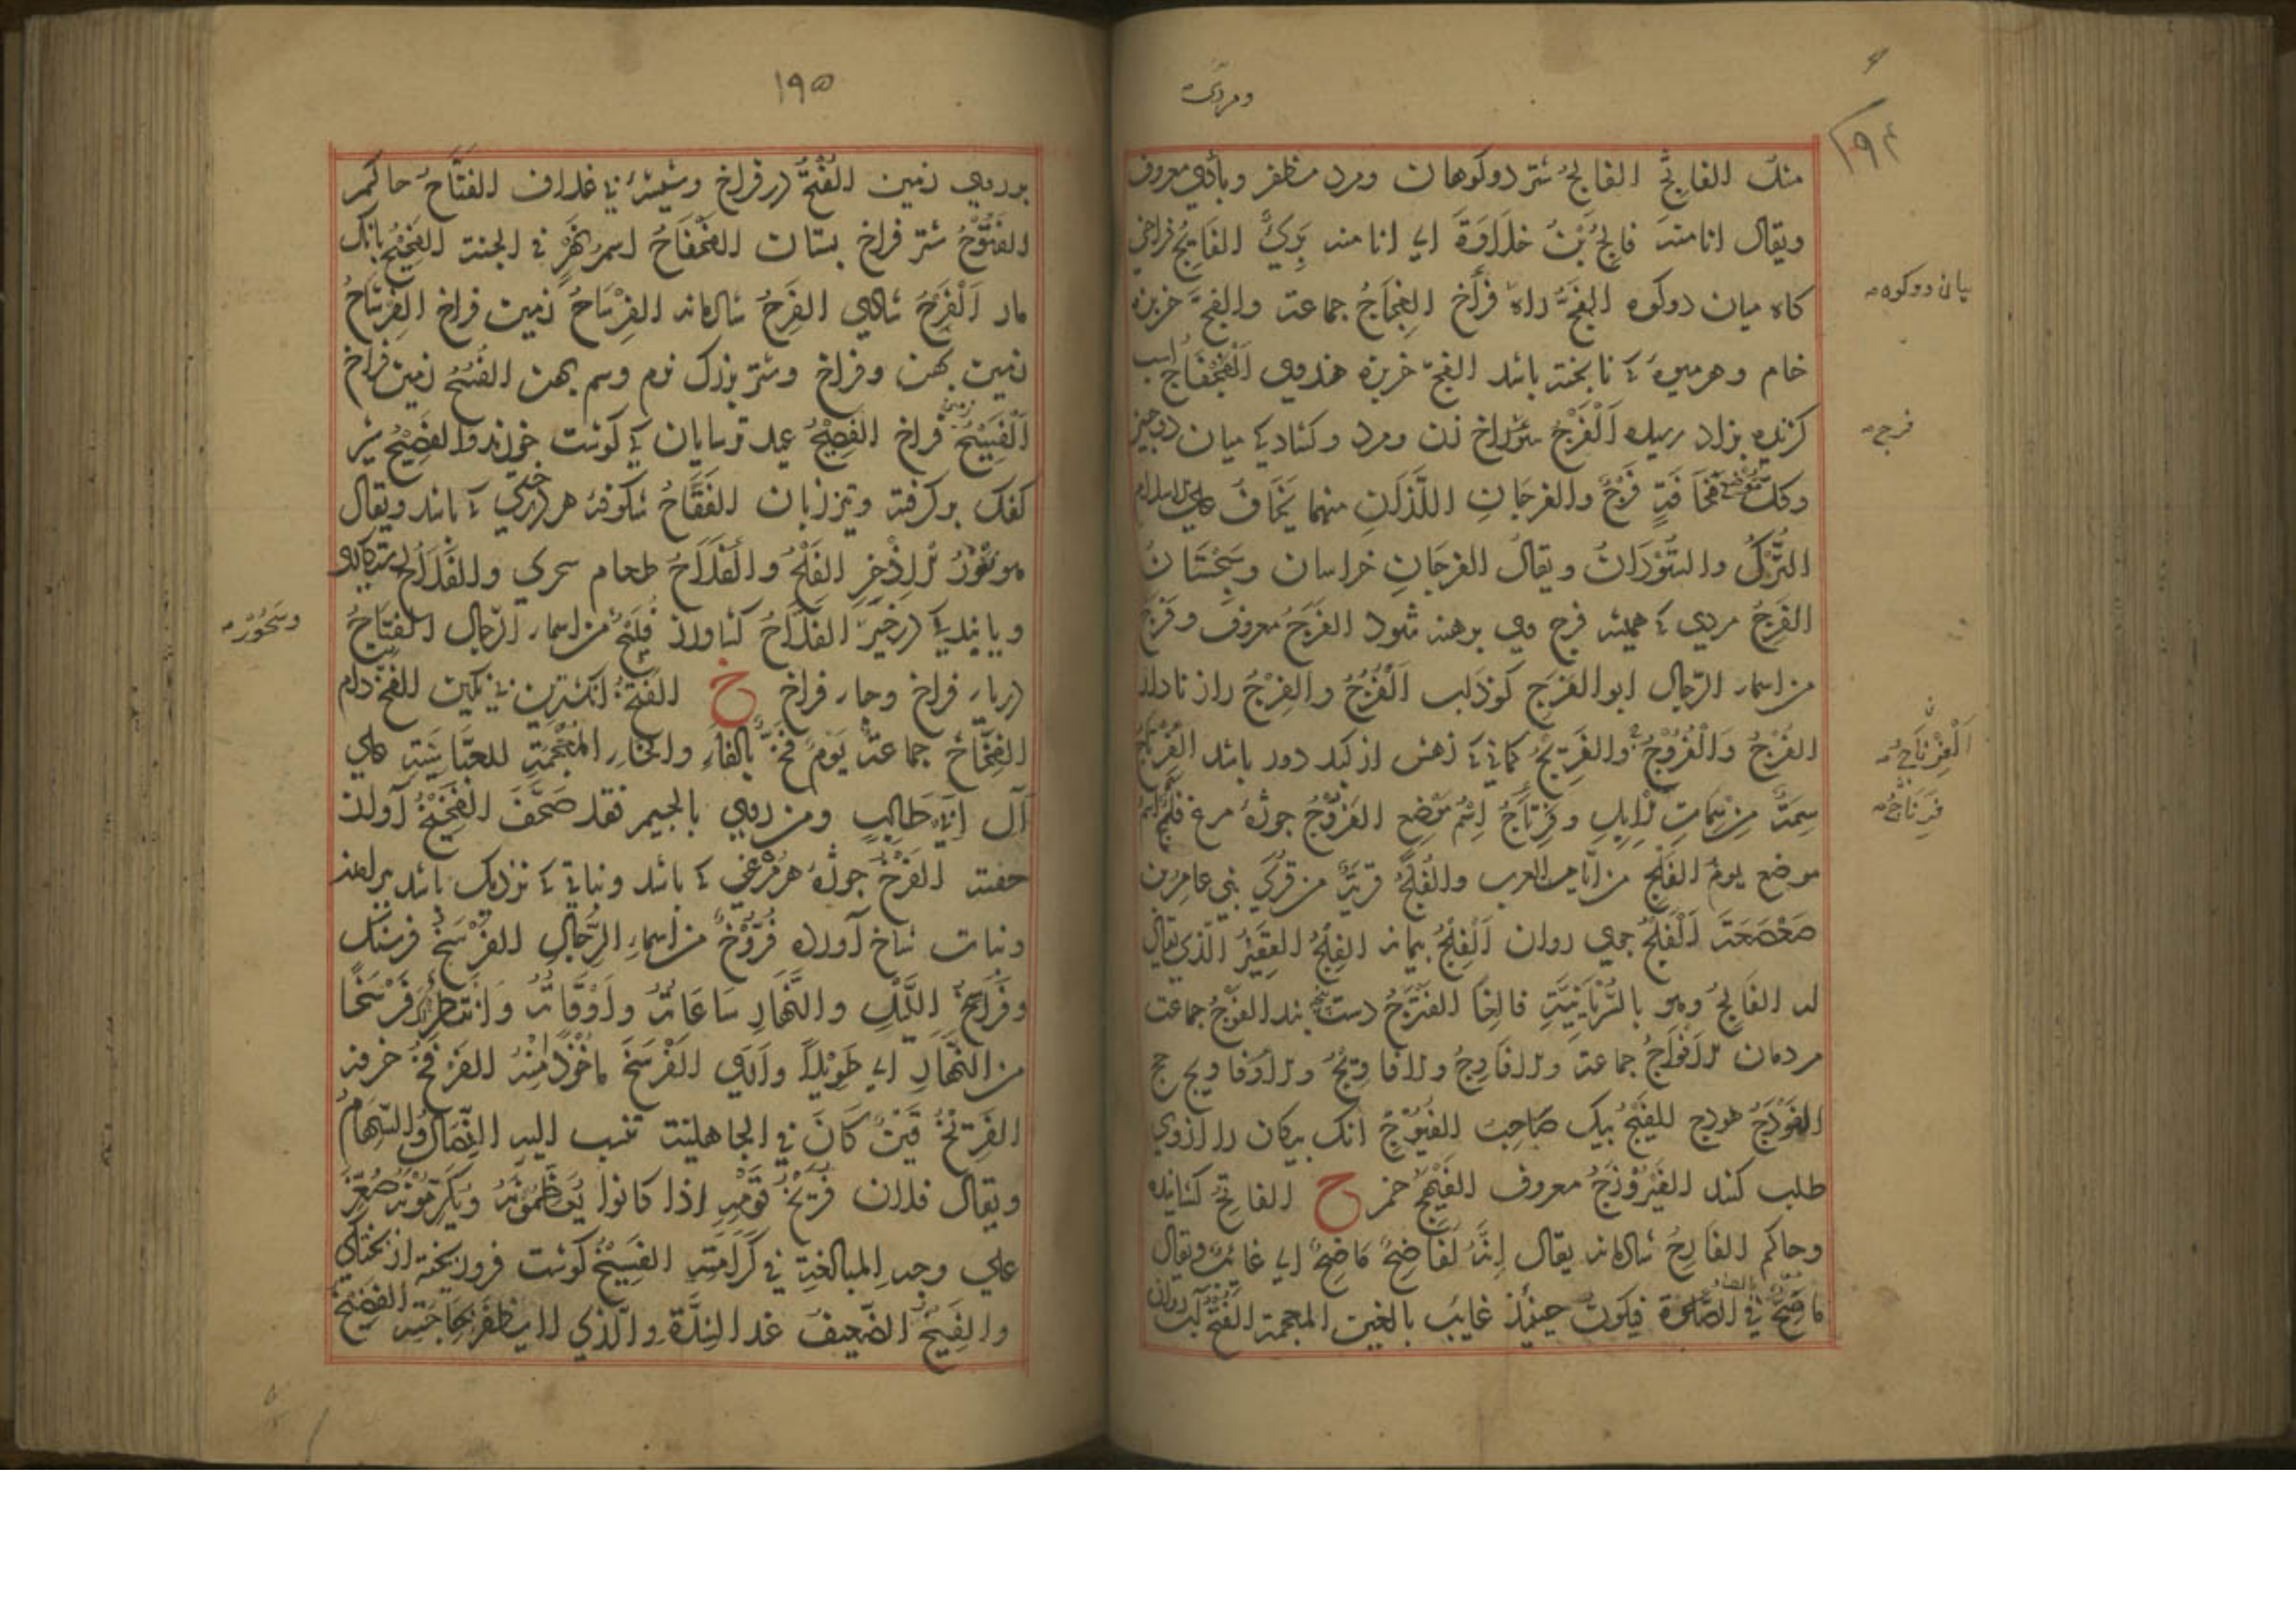 ومردی
۱۹۴
منك الفایج الفالج شتر دوکوهان ومرد مظفر وبادی معروف
ویقال انا منه فالج بن خلاوة ای انا منه بری الفایج فراخی
کاه میان دوکوه الفج راه فراخ الفجاج جماعة والفج خربزه
میان دوکوه
خام وهر میوۀ که ناپخته باشد الفج خربزه هندوی الفجفاج
کزنده بزاد رسیده الفرج سوراخ زن ومرد وکشادی میان دو چیز
فرج
وکل موضع مخافة فرج والفرجان اللذان منهما یخاف علی الاسلام
الترك والسودان ویقال الفرجان خراسان وسجستان
الفرج مردی که همیشه فرج وی برهنه شود الفرج معروف وفرج
من اسماء الرجال ابو الفرج کوزلب الفرج والفرج راز نادار
الفرج والفروج والفریج کمانی که زهش از کبد دور باشد الفرتاج
الفرتاج
سمة من سمات الابل وفرتاج اسم موضع الفروج جوژۀ مرغ فلج اسم
فرتاج
موضع یوم الفلج من ایام العرب والفلج قریة من قری بنی عامر بن
صعصعة الفلج جوی روان الفلج پیمانه الفلج القفیز الذی یقال
له الفالج وهو بالسریانیة فالغا الفنزج دست بند الفوج جماعت
مردمان الافواج جماعة والافاوج والافاویج ج ج
الفودج هودج الفیج پیک صاحب الفیوج انک پیکان را از وی
طلب کند الفیروزج معروف الفیهج خمر ح الفاتح کشاینده
وحاکم الفارح شادمانه یقال انه لفاضح ماضح ای غائب ویقال
ماصح فی الصلوة فیکون حینئذ غایب بالغین المعجمة الفتح آب روان
۱۹۵
بر روی زمین الفتح در فراخ وشیشۀ بی غلاف الفتاح حاکم
الفتوح شتر فراخ پستان الفحفاح اسم نهر فی الجنة الفحیح بانک
مار الفرح شادی الفرح شادمانه الفرساح زمین فراخ الفرشاح
زمین پهن وفراخ وشتر بزرک نرم وسم پهن الفسح زمین فراخ
الفسیح زمین فراخ الفصح عید ترسایان که کوشت خورند والفصیح شیر
کفک برکرفته وتیز زبان الفقاح شکوفۀ هر درختی که باشد ویقال
هو نور الاذخر الفلح والفلاح طعام سحری والفلاح رستکاری
وسحور
وپایندکی در خیر الفلاح کشاورز فلیح من اسماء الرجال الفتاح
دربار فراخ وجار فراخ خ الفتخة انکشترین بی نکین الفخ دام
الفخاخ جماعة یوم فخ بالفاء والخاء المعجمة للعباسیة علی
آل ابی طالب ومن روی بالجیم فقد صحف الفخیخ آواز
خفته الفرخ جوژۀ هر مرغی که باشد ونباتی که نزدیک باشد
ونبات شاخ آورده فروخ من اسماء الرجال الفرسخ فرسنک
وفراسخ اللیل والنهار ساعاته واوقاته وانتظرتك فرسخا
من النهار ای طویلا واری الفرسخ ماخوذ منه الفرفخ خرفه
الفریخ قین کان فی الجاهلیة تنسب الیه النصال والسهام
ویقال فلان فریخ قومه اذا کانوا یعظمونه ویکرمونه صغر
علی وجه المبالغة فی کرامته الفسیخ کوشت فرو ریخته از پختکی
والفسیخ الضعیف عند الشدة والذی لا یظفر بحاجته الفضیخ